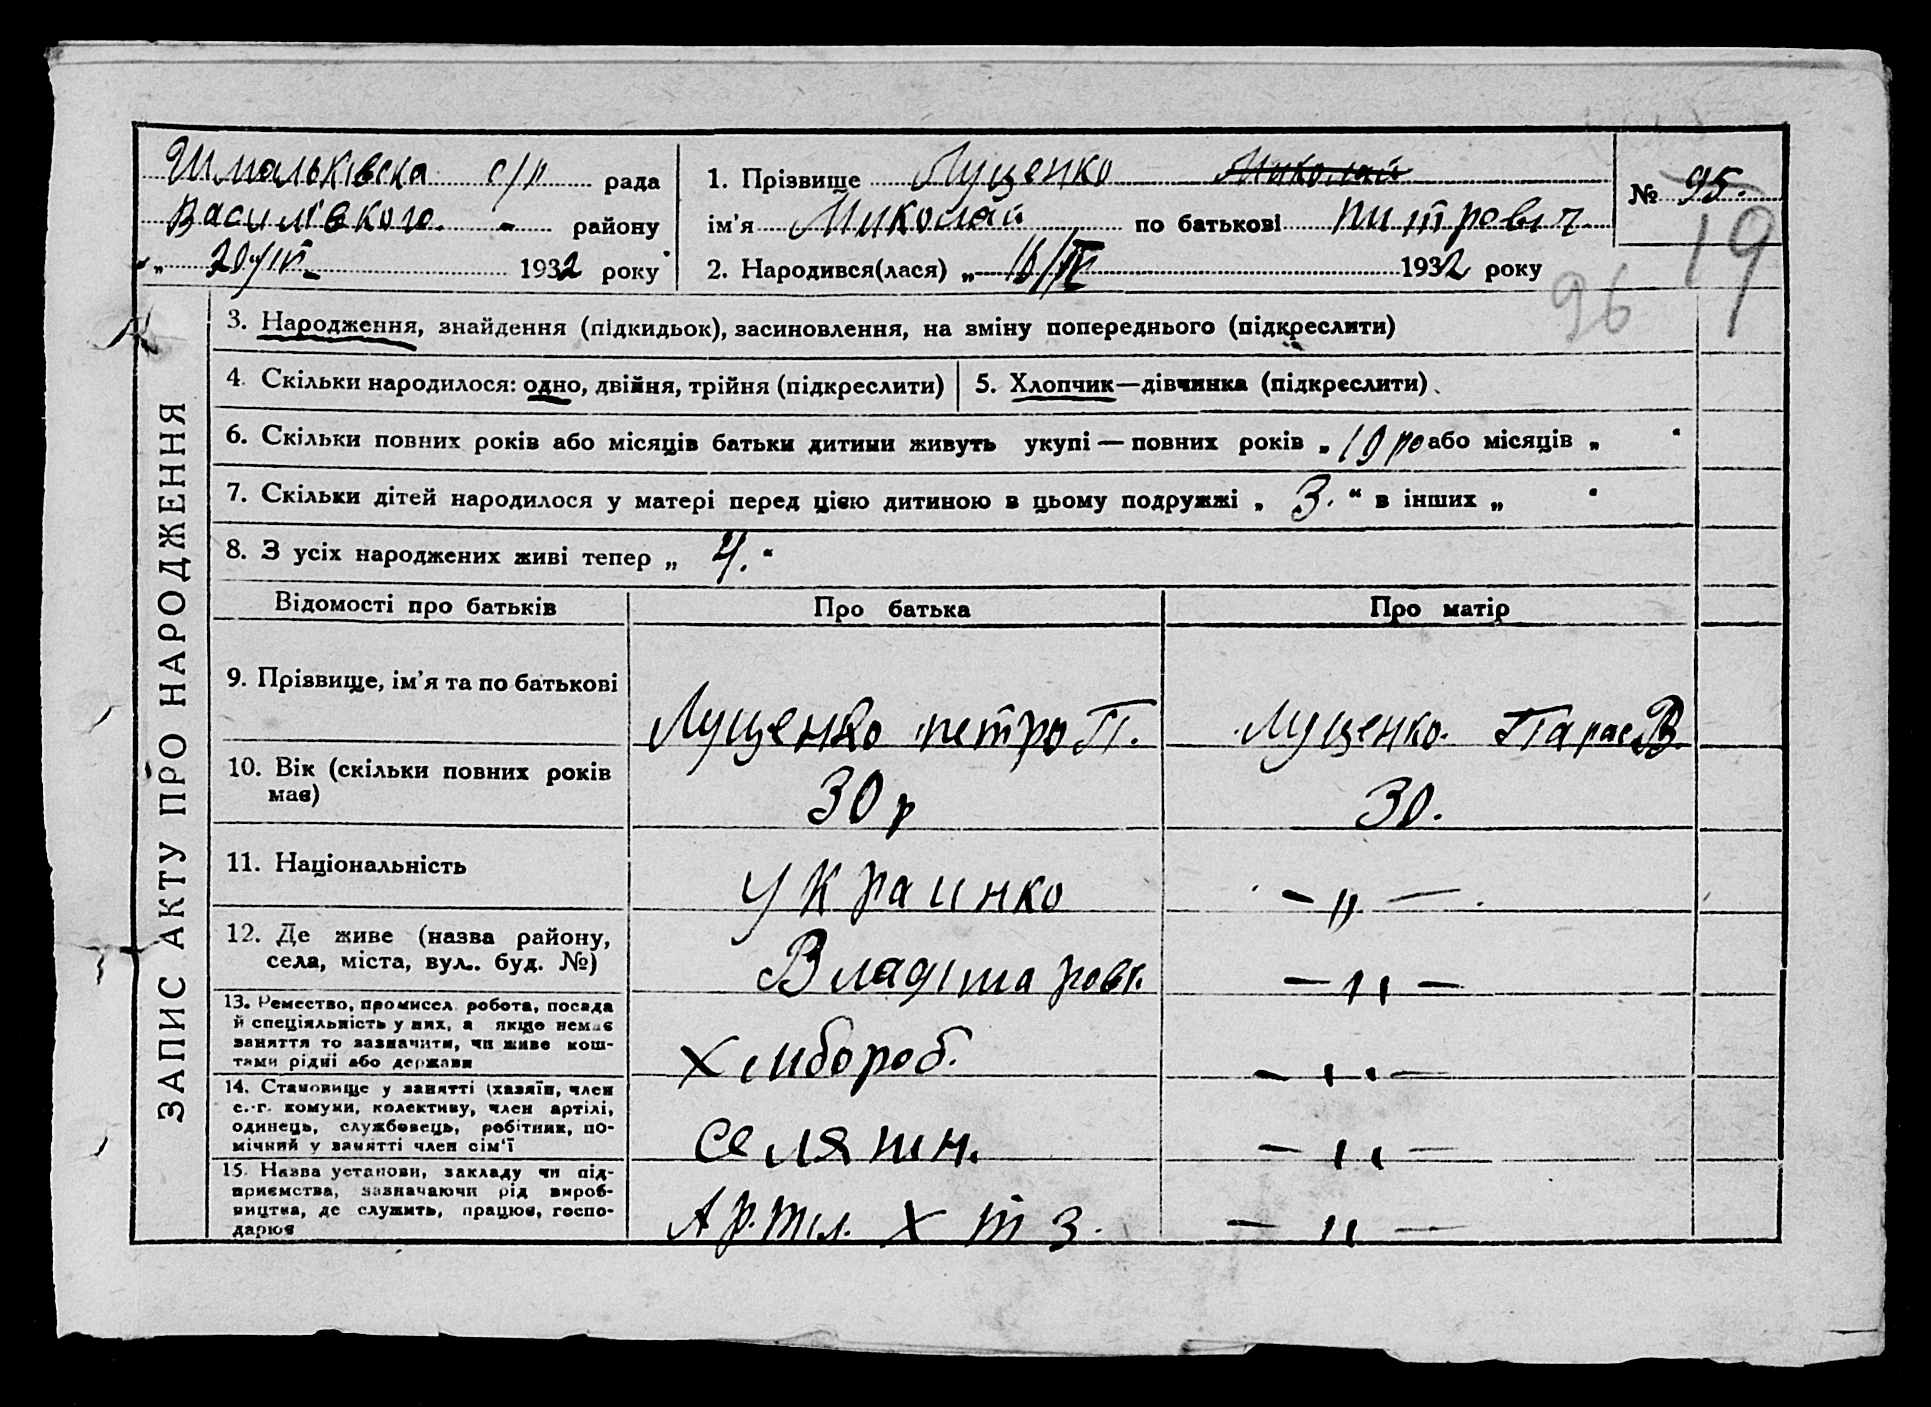 Шмальківска с/р рада
Василівкого району
„ 20/IV 1932 року
1. Прізвище Луценко Миколай
ім'я Миколай по батькові питрович
2. Народився(лася) „ 16/IV 1932 року
№ 95.
19
96
ЗАПИС АКТУ ПРО НАРОДЖЕННЯ
3. Народження, знайдення (підкидьок), засиновлення, на зміну попереднього (підкреслити)
4. Скільки народилося: одно, двійня, трійня (підкреслити)
5. Хлопчик—дівчинка (підкреслити)
6. Скільки повних років або місяців батьки дитини живуть укупі — повних років „ 10 ро або місяців „ "
7. Скільки дітей народилося у матері перед цією дитиною в цьому подружжі „ 3. " в інших „ "
8. З усіх народжених живі тепер „ 4. "
Відомості про батьків Про батька Про матір
9. Прізвище, ім'я та по батькові
Луценко петро П. Луценко. Парас В.
10. Вік (скільки повних років
має)
30 р 30.
11. Національність
украинко — „ —
12. Де живе (назва району,
села, міста, вул.. буд. №)
Владіма ровк. — „ —
13. Ремество, промисел. робота, посада
й спеціяльність у них, а якщо немає
заняття то зазначити, чи живе кош-
тами рідні або держави
хлибороб. — „ —
14. Становище у занятті (хазяїн, член
с.-г. комуни, колективу, член артілі,
одинець, службовець, робітник, по-
мічний у занятті член сім'ї
селянин. — „ —
15. Назва установи, закладу чи під-
приємства, зазначаючи рід вироб-
ництва, де служить, працює, госпо-
дарює
Артіл. х т з. — „ —